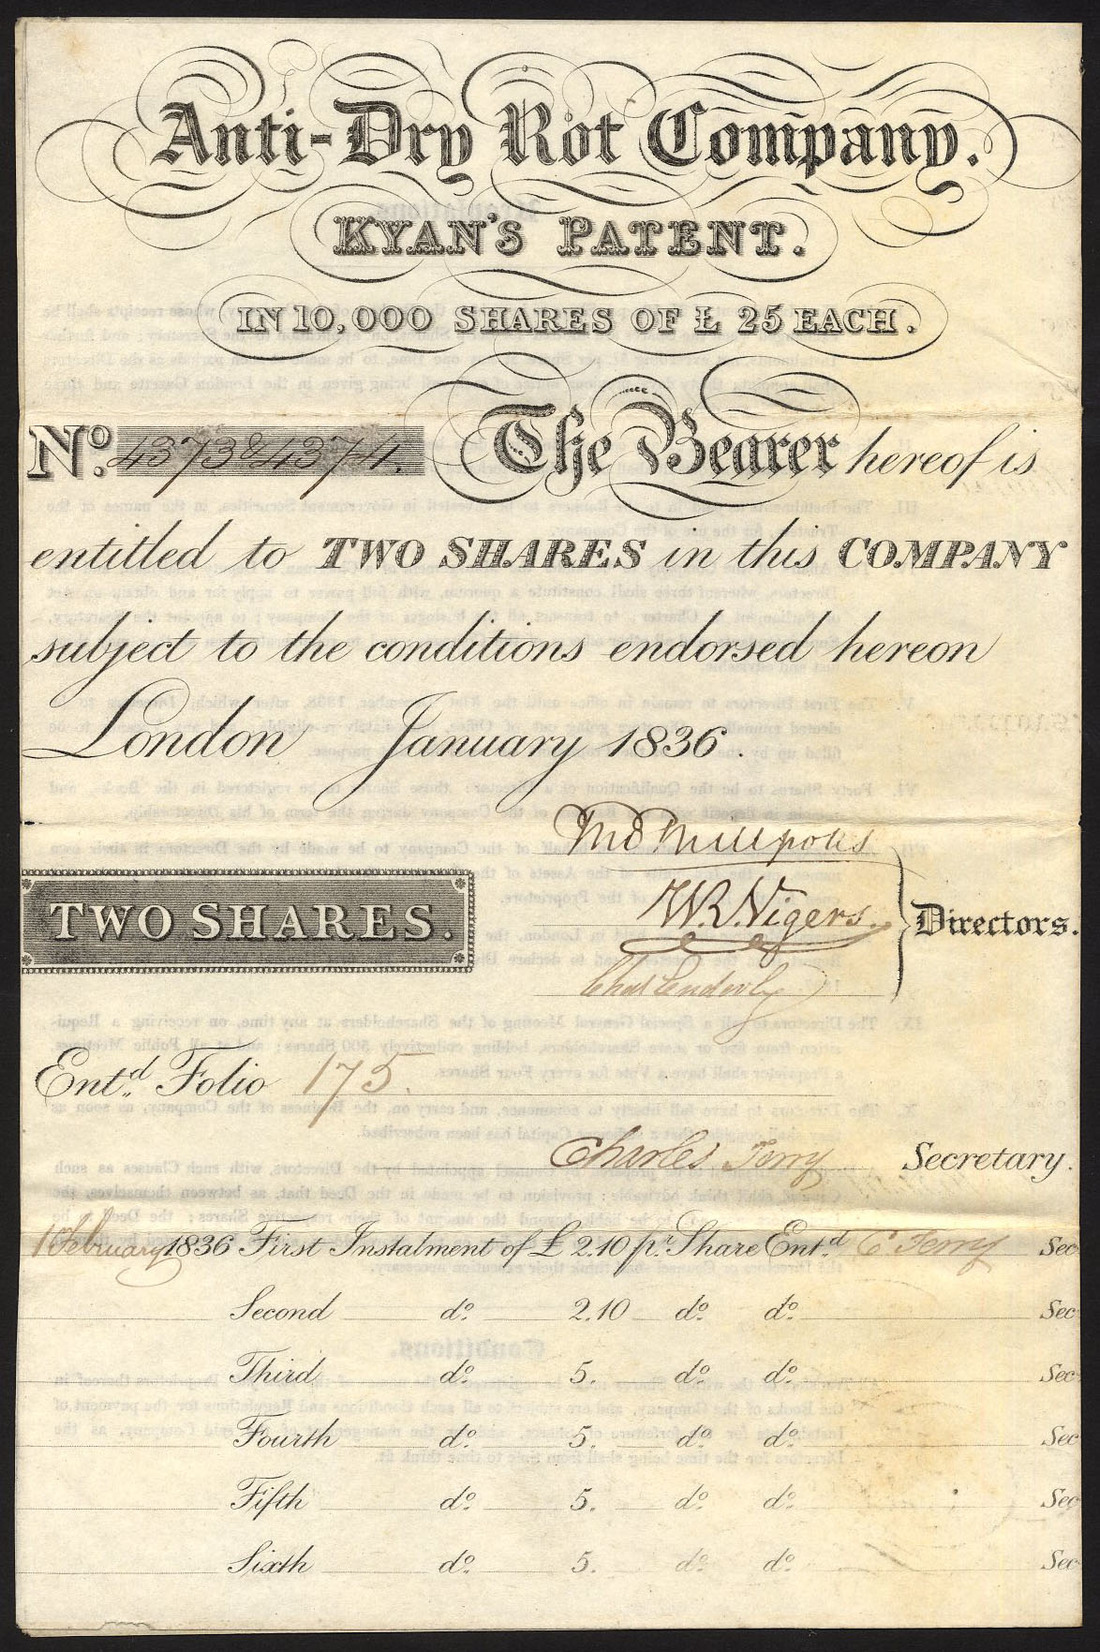 Anti-Dry Rot Company.
KYAN'S PATENT.
IN 10,000 SHARES OF £ 25 EACH.
No. 4373 & 4374. The Bearer hereof is
entitled to TWO SHARES in this COMPANY
subject to the conditions endorsed hereon
London January 1836.
W.R. Vigers.
TWO SHARES.
Directors.
Chas Enderby
Entd. Folio 175.
Charles Terry Secretary.
1 February 1836 First Instalment of £ 2.10 pr. Share Entd. C Terry Sec
Second do. 2.10 do. do. Sec
Third do. 5. do. do. Sec
Fourth do. 5. do. do. Sec
Fifth do. 5. do. do. Sec
Sixth do. 5. do. do. Sec